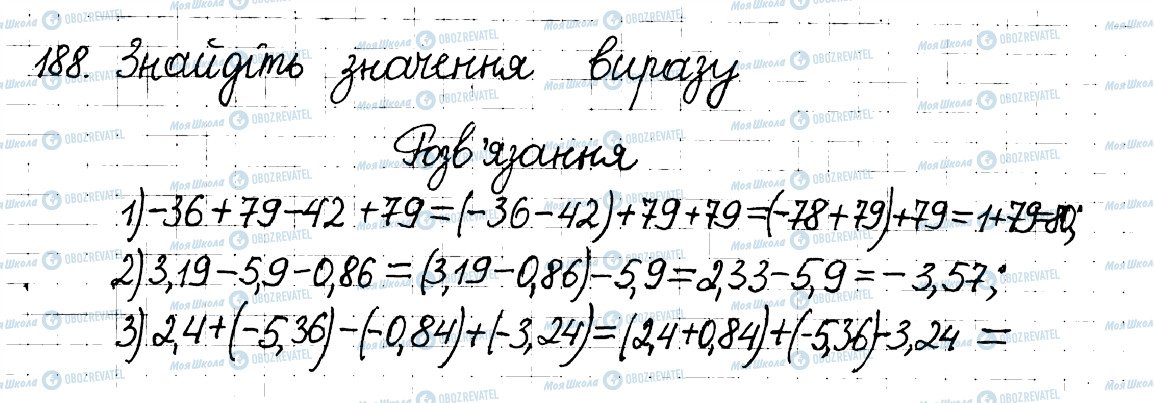 188. Знайдіть значення виразу
Розв'язання
1) -36+79-42+79=(-36-42)+79+79=(-78+79)+79=1+79=80;
2) 3,19-5,9-0,86=(3,19-0,86)-5,9=2,33-5,9=-3,57;
3) 2,4+(-5,36)-(-0,84)+(-3,24)=(2,4+0,84)+(-5,36)-3,24=